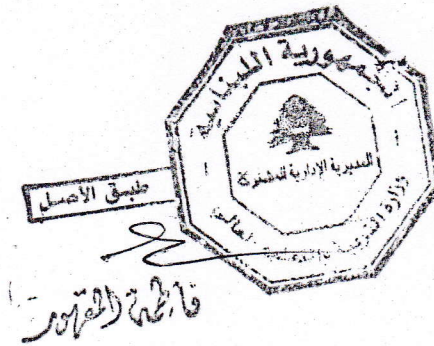 الجمهورية اللبنانية
المديرية الإدارية المشتركة
وزارة التربية والتعليم العالي
طبق الأصل
فاطمة